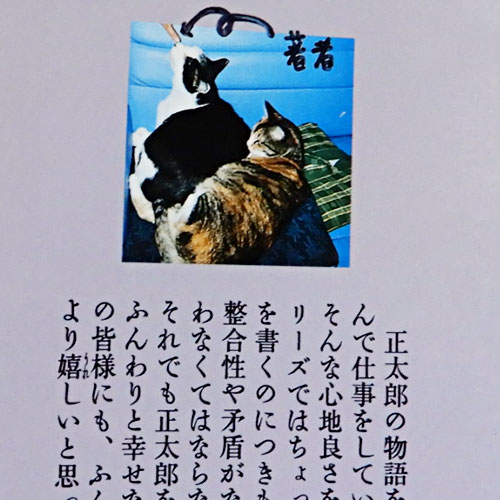 著者
正太郎の物語を
んで仕事をしてい
そんな心地良さを
リーズではちょっ
を書くのにつきも
整合性や矛盾がな
わなくてはならな
それでも正太郎を
ふんわりと幸せな
の皆様にも、ふん
より嬉しいと思っ
うれ